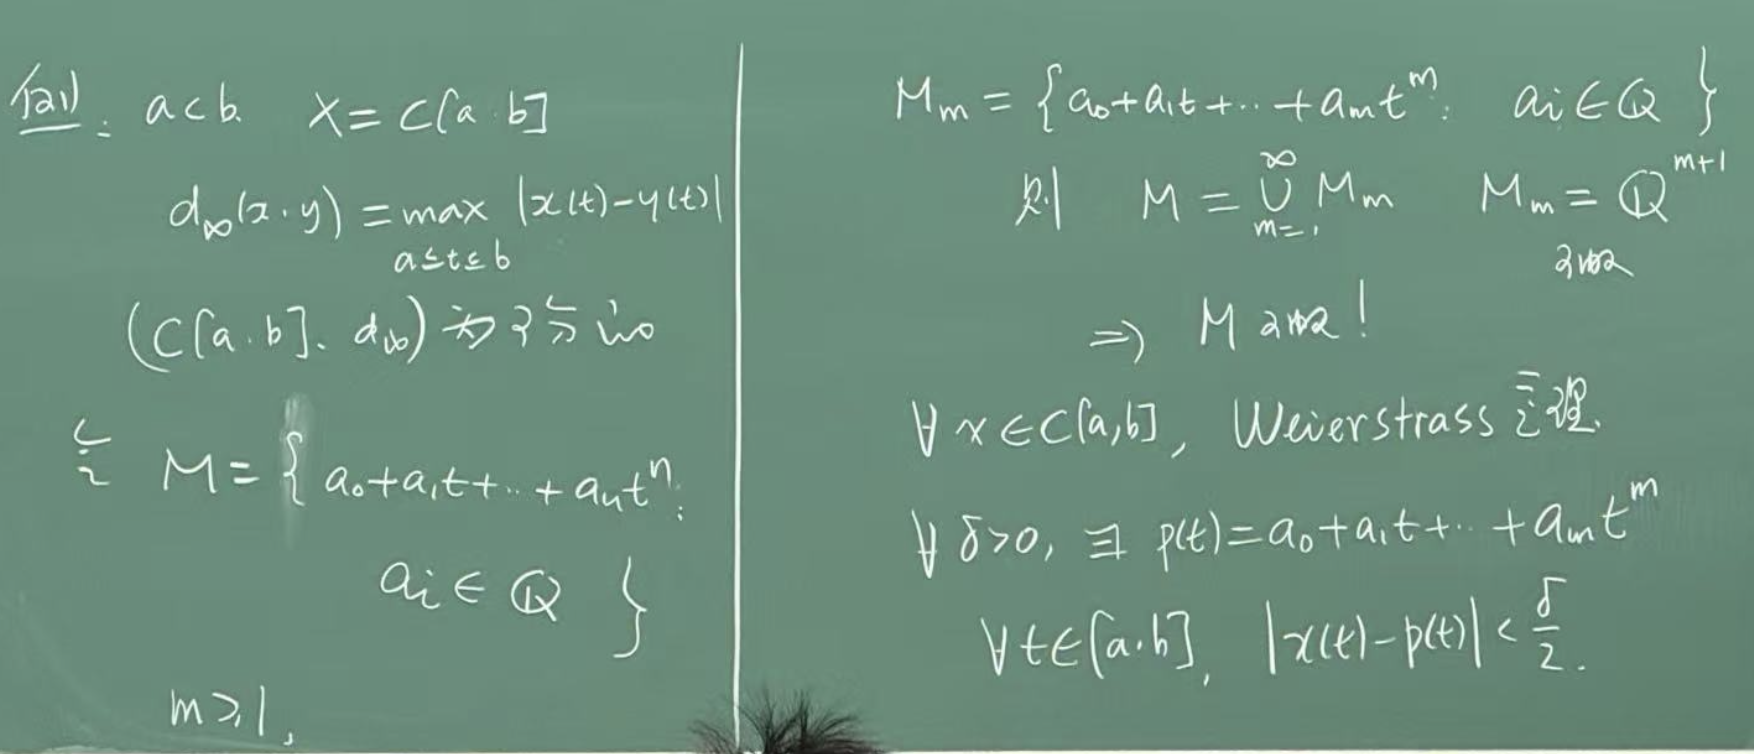 例: a<b. X = C[a.b]
d∞(x.y) = max |x(t)-y(t)|
a≤t≤b
(C[a.b]. d∞) 为可分的
令 M = { a₀+a₁t+..+aₙtⁿ:
aᵢ ∈ Q }
m ≥ 1,
Mₘ = { a₀+a₁t+..+aₘtᵐ: aᵢ ∈ Q }
则 M = ∪_{m=1}^{∞} Mₘ Mₘ = Q^{m+1}
可数
=> M 可数!
∀ x ∈ C[a,b], Weierstrass 定理.
∀ δ>0, ∃ p(t)=a₀+a₁t+..+aₘtᵐ
∀ t∈[a.b], |x(t)-p(t)| < δ/2.